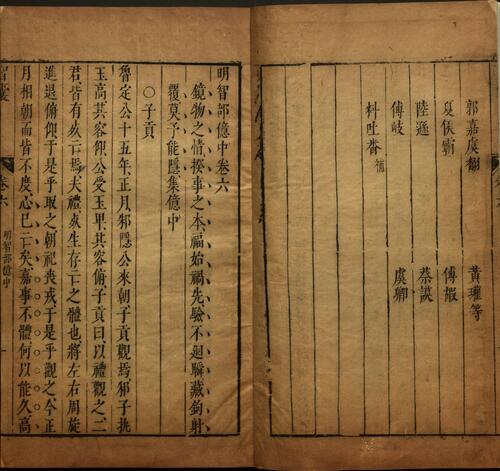 郭嘉虞翻　黃權等
夏侯霸　傅嘏
陸遜　蔡謨
傅岐　虞卿
料吐蕃補
明智部億中卷六
鏡物之情揆事之本福始禍先驗不迴瞬藏鉤射
覆莫予能隱集億中
○子貢
魯定公十五年正月邾隱公來朝子貢觀焉邾子執
玉高其容仰公受玉卑其容俯子貢曰以禮觀之二
君皆有死亡焉夫禮死生存亡之體也將左右周旋
進退俯仰于是乎取之朝祀喪戎于是乎觀之今正
月相朝而皆不度心已亡矣嘉事不體何以能久高
智囊　卷六　明智部億中　一